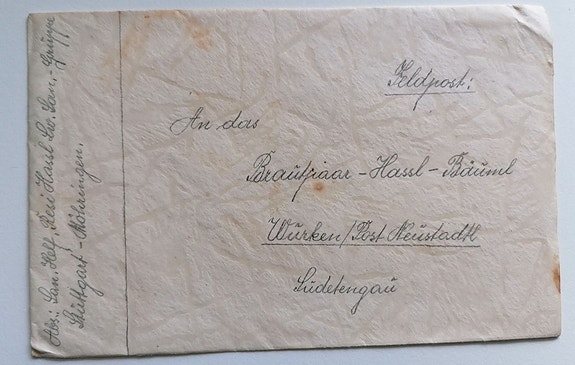 Feldpost:
An das
Brautpaar - Hassl - Bäuml
Wurken / Post Neustadtl
Sudetengau
Abs.: San. Helf. Resi Hassl Lw. San. - Gruppe
Stuttgart - Möhringen.